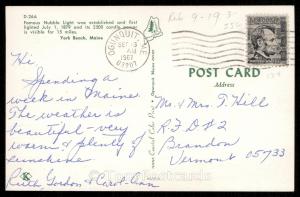 D-26A
Famous Nubble Light was established and first
lighted July 1, 1879 and its 2500 candle power
is visible for 15 miles.
York Beach, Maine
OGUNQUIT, ME.
SEP 13
AM
1967
03907
POST CARD
Address
Hi,
Spending a
week in Maine.
The weather is
beautiful - very
warm & plenty of
sunshine
Ruth, Gordon & Carol-Ann
Mr. & Mrs. T. Hill
R.F.D # 2
Brandon
Vermont 05733
K